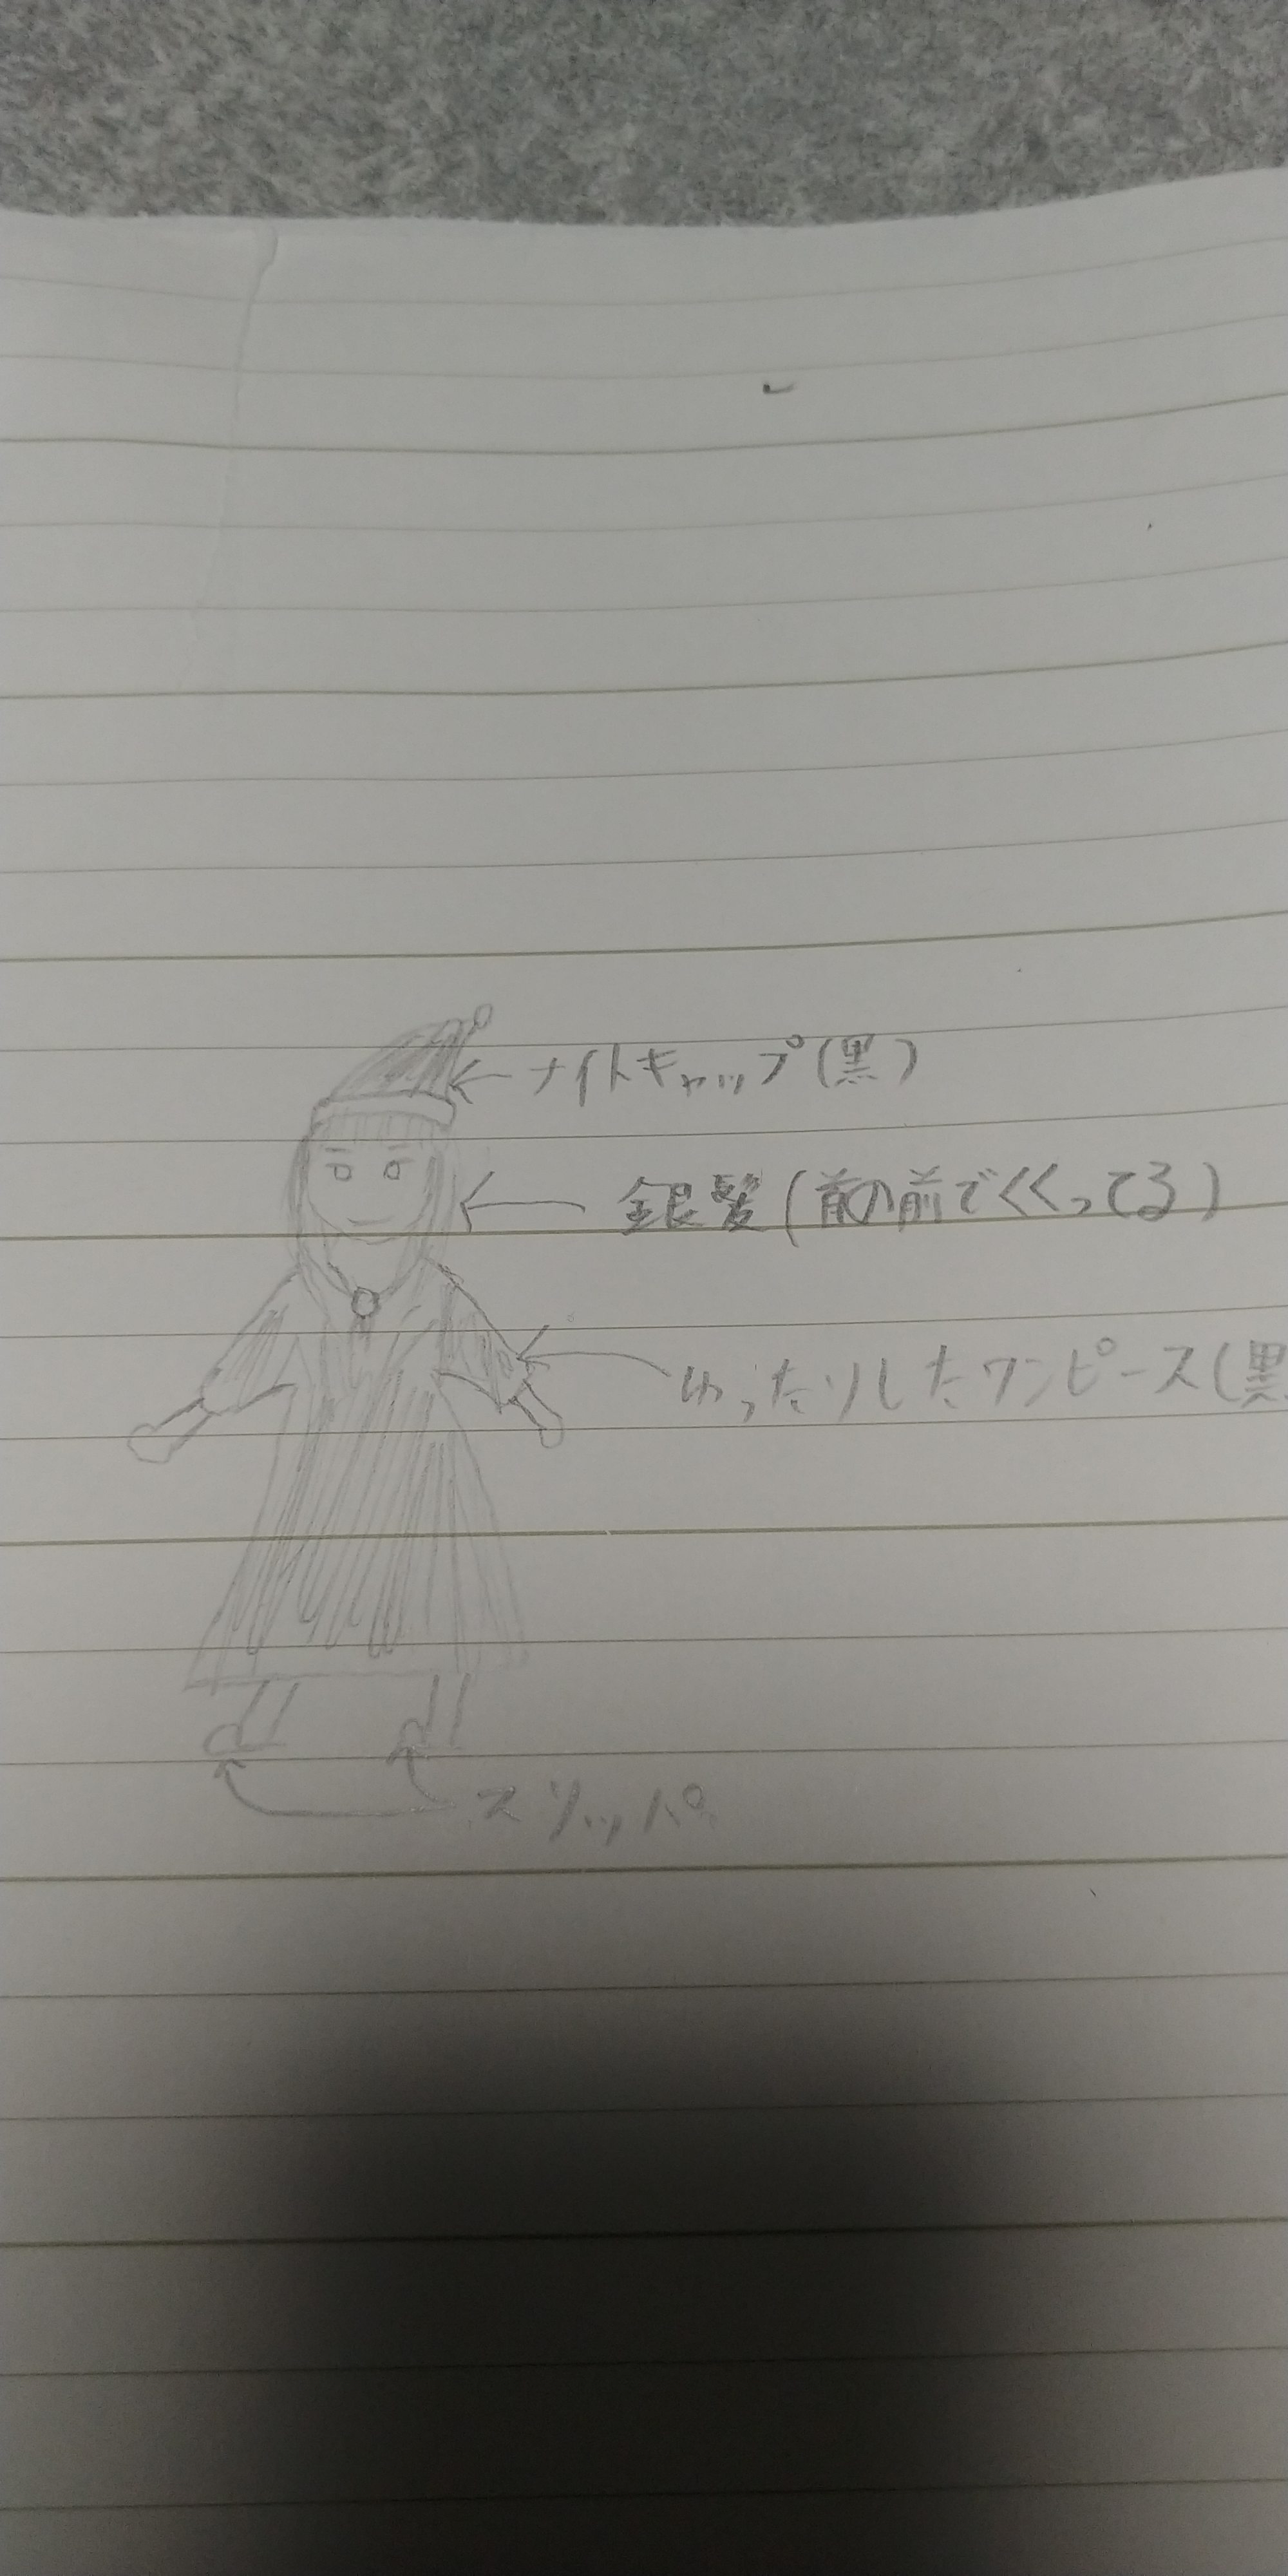 ナイトキャップ(黒)
銀髪(前の前でくくってる)
ゆったりしたワンピース(黒
スリッパ